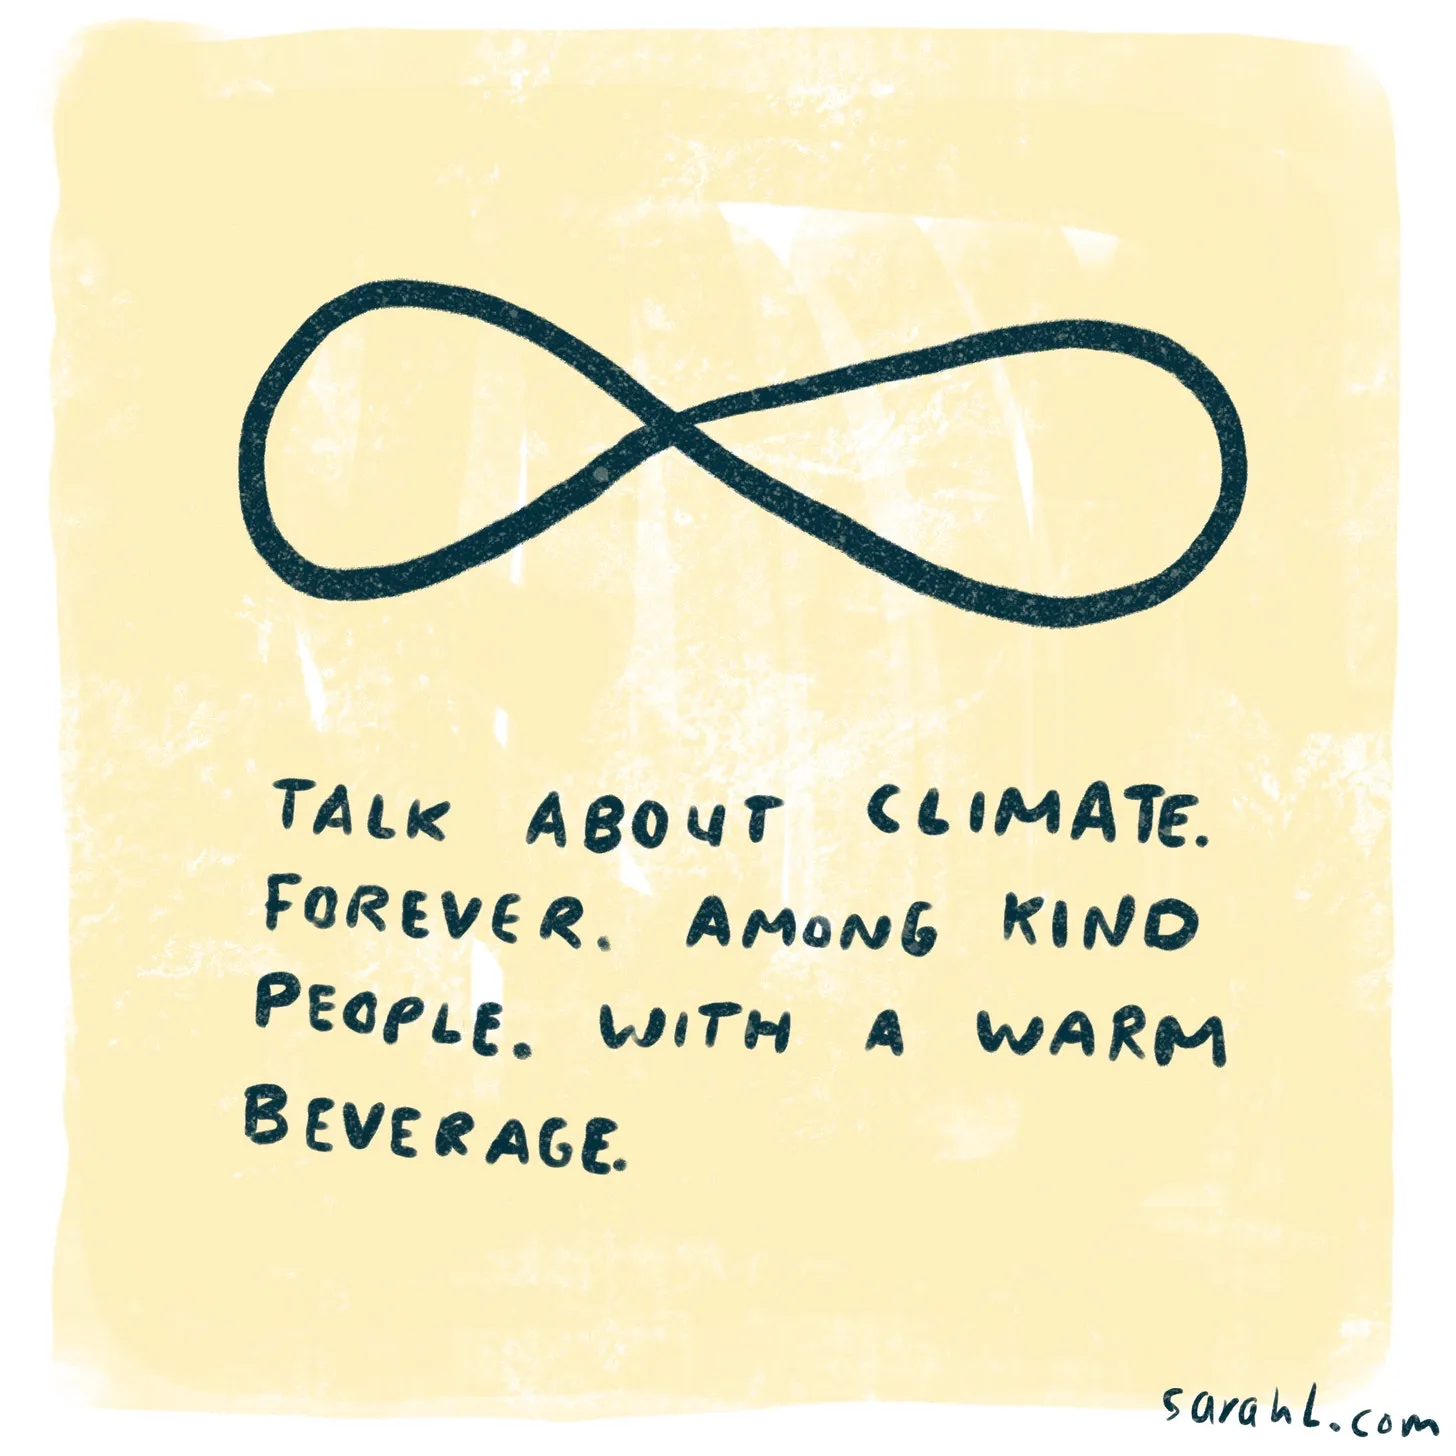 TALK ABOUT CLIMATE.
FOREVER. AMONG KIND
PEOPLE. WITH A WARM
BEVERAGE.
sarahl.com